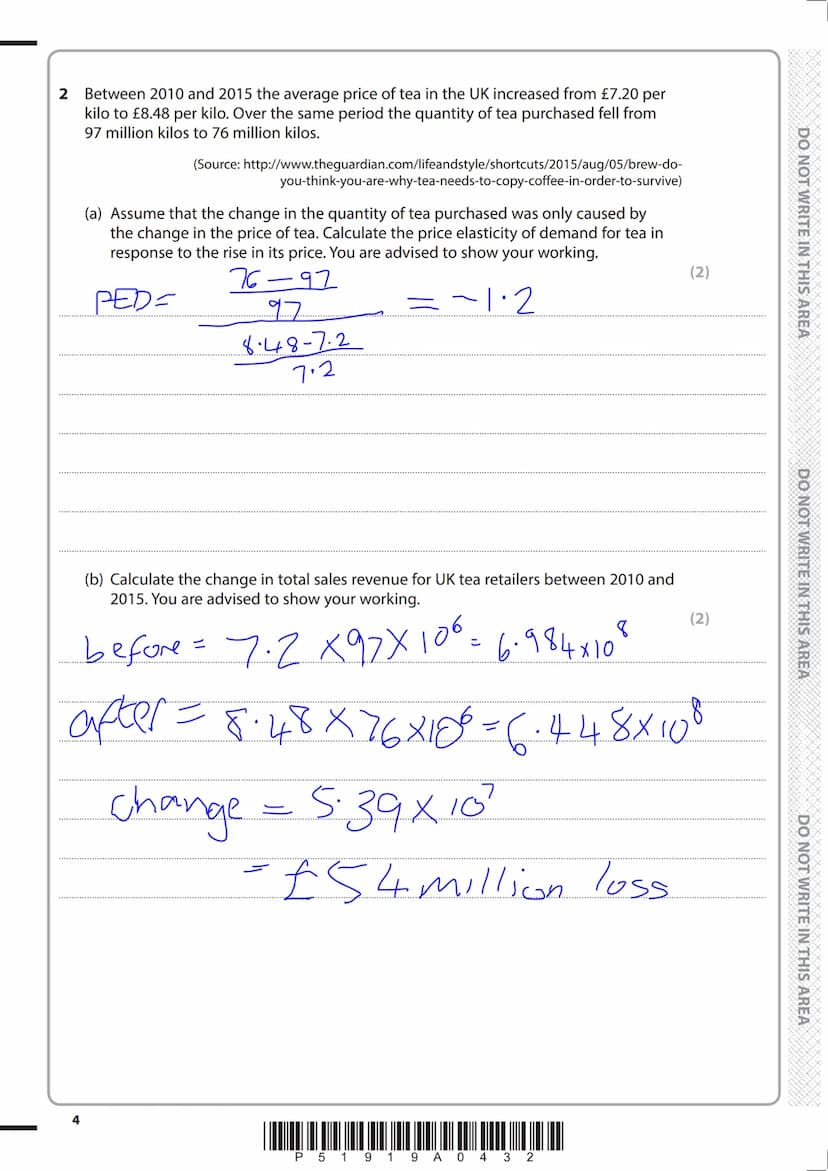 2 Between 2010 and 2015 the average price of tea in the UK increased from £7.20 per
kilo to £8.48 per kilo. Over the same period the quantity of tea purchased fell from
97 million kilos to 76 million kilos.
(Source: http://www.theguardian.com/lifeandstyle/shortcuts/2015/aug/05/brew-do-
you-think-you-are-why-tea-needs-to-copy-coffee-in-order-to-survive)
(a) Assume that the change in the quantity of tea purchased was only caused by
the change in the price of tea. Calculate the price elasticity of demand for tea in
response to the rise in its price. You are advised to show your working.
(2)
76 - 97
PED = 97 = -1.2
8.48 - 7.2
7.2
(b) Calculate the change in total sales revenue for UK tea retailers between 2010 and
2015. You are advised to show your working.
(2)
before = 7.2 × 97 × 10⁶ = 6.984 × 10⁸
after = 8.48 × 76 × 10⁶ = 6.448 × 10⁸
change = 5.39 × 10⁷
= £54 million loss
4
P51919A0432
DO NOT WRITE IN THIS AREA
DO NOT WRITE IN THIS AREA
DO NOT WRITE IN THIS AREA